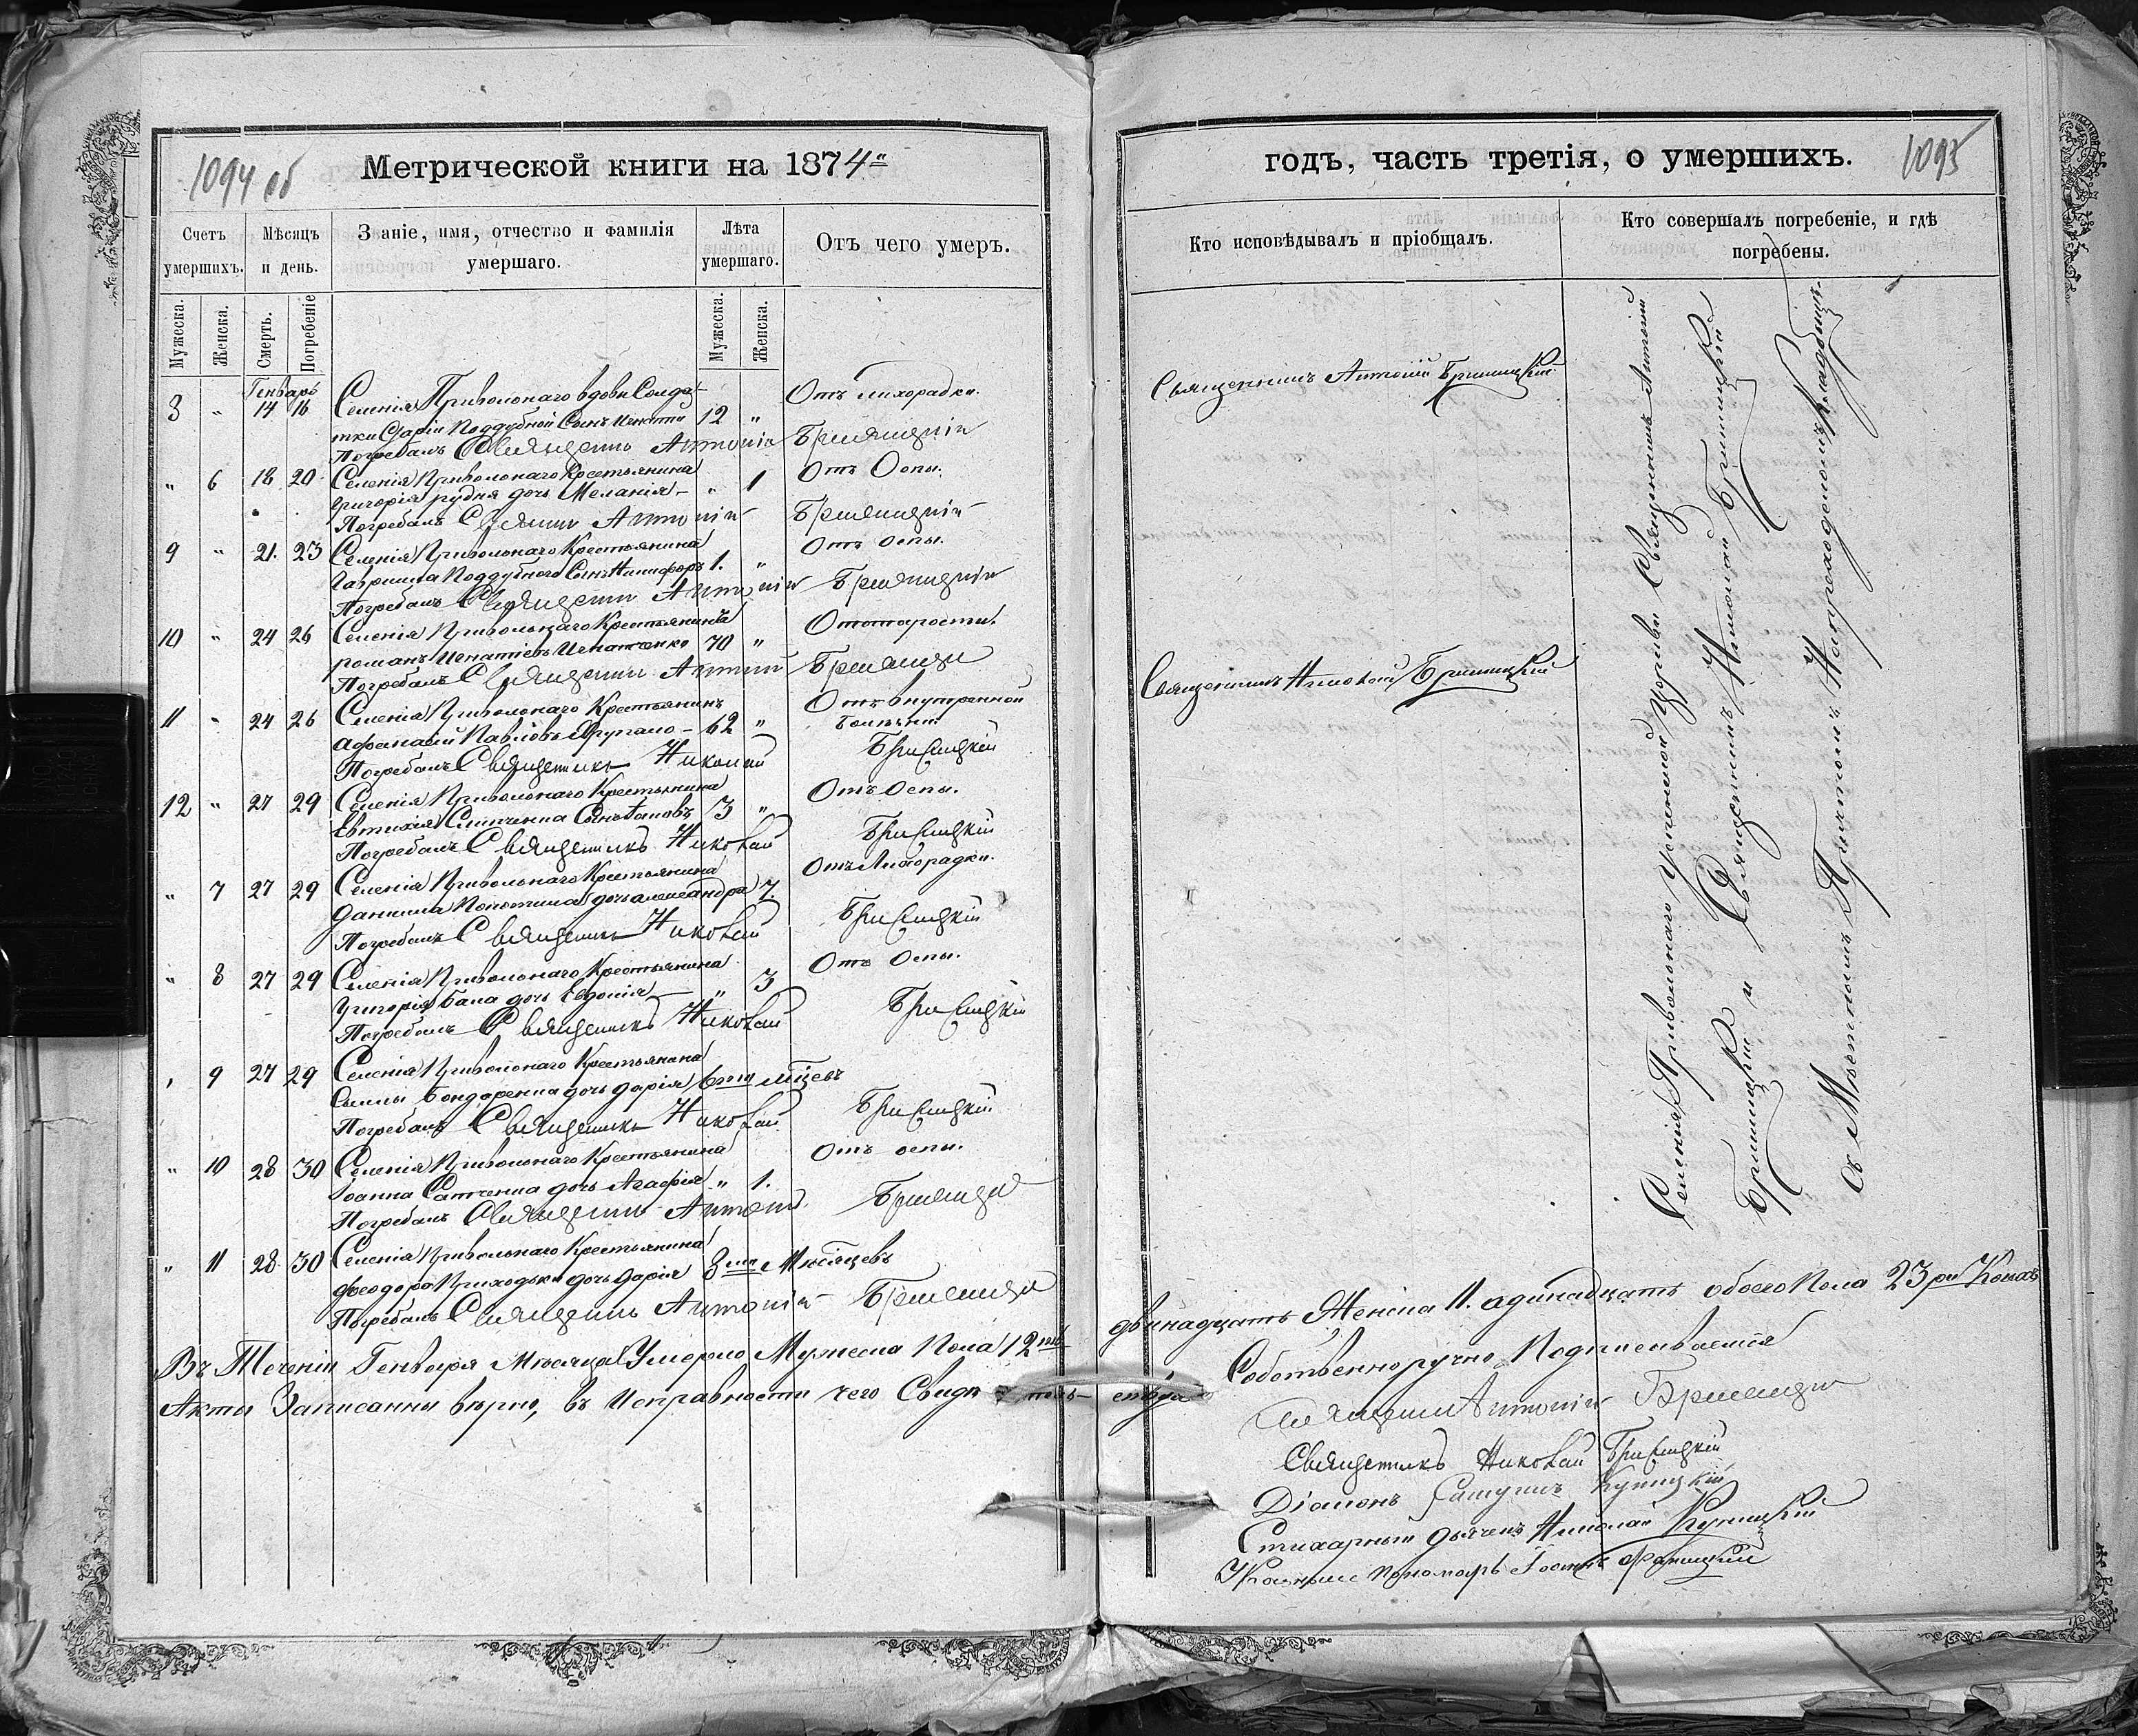 1094 об
Метрической книги на 1874
Счетъ умершихъ.
Мѣсяцъ и день.
Званіе, имя, отчество и фамилія умершаго.
Лѣта умершаго.
Отъ чего умеръ.
Мужеска.
Женска.
Смерть.
Погребеніе
Мужеска.
Женска.
Генварь
3 " 14 16 Селенія Привольнаго вдовы Солдат
тки Поддубной Сынъ Игнатій 12 " Отъ лихорадки.
Погребалъ Священникъ Антоній Бришицкій
" 6 18 20 Селенія Привольнаго Крестьянина
Григорія рудня дочь Меланія " 1 Отъ Оспы.
Погребалъ Священникъ Антоній Бришицкій
9 " 21. 23 Селенія Привольнаго Крестьянина
Гавриила Поддубнаго Сынъ Никифоръ 1. " Отъ оспы.
Погребалъ Священникъ Антоній Бришицкій
10 " 24 26 Селенія Привольнаго Крестьянинъ
романъ Игнатіевъ Игнатенко 70 " Отъ старости.
Погребалъ Священникъ Антоній Бришицкій
11 " 24 26 Селенія Привольнаго Крестьянинъ
Афанасій Павловъ 62 " Отъ внутренной болѣзни
Погребалъ Священникъ Николай Бришицкій
12 " 27 29 Селенія Привольнаго Крестьянина
Евтихія Сынъ 3 " Отъ Оспы.
Погребалъ Священникъ Николай Бришицкій
" 7 27 29 Селенія Привольнаго Крестьянина
Даниила дочь александра 7. Отъ Лихорадки.
Погребалъ Священникъ Николай Бришицкій
" 8 27 29 Селенія Привольнаго Крестьянина
Григорія бана дочь Евдокія " 3 Отъ Оспы.
Погребалъ Священникъ Николай Бришицкій
" 9 27 29 Селенія Привольнаго Крестьянина
Бондаренка дочь дарія 6ти мѣсцевъ
Погребалъ Священникъ Николай Бришицкій
" 10 28 30 Селенія Привольнаго Крестьянина
Іоанна дочь Агафія " 1. Отъ оспы.
Погребалъ Священникъ Антоній Бришицкій
" 11 28 30 Селенія Привольнаго Крестьянина
феодора Приходька дочь дарія 8ми Мѣсяцевъ
Погребалъ Священникъ Антоній Бришицкій
Въ Теченіи Генваря Мѣсяца Умерло Мужеска Пола 12ть
Акты Записанны вѣрно, въ Исправности чего Свидѣтель
годъ, часть третія, о умершихъ.
1095
Кто исповѣдывалъ и пріобщалъ.
Кто совершалъ погребеніе, и гдѣ погребены.
Священникъ Антоній Бришицкій
Священникъ Николай Бришицкій
Селенія Привольнаго Успенской Церкви Священникъ Антоній
Бришицкій и Священникъ Николай Бришицкій
съ Мѣстнымъ Причтомъ На приходскомъ Кладбищѣ.
двѣнадцать Женска 11. адинадцать обоего Пола 23
Собственноручно Подписывается
Священникъ Антоній Бришицкій
Священникъ Николай Бришицкій
Діаконъ Куницкій
Стихарный дьячекъ Николай Куницкій
пономарь Іоаннъ